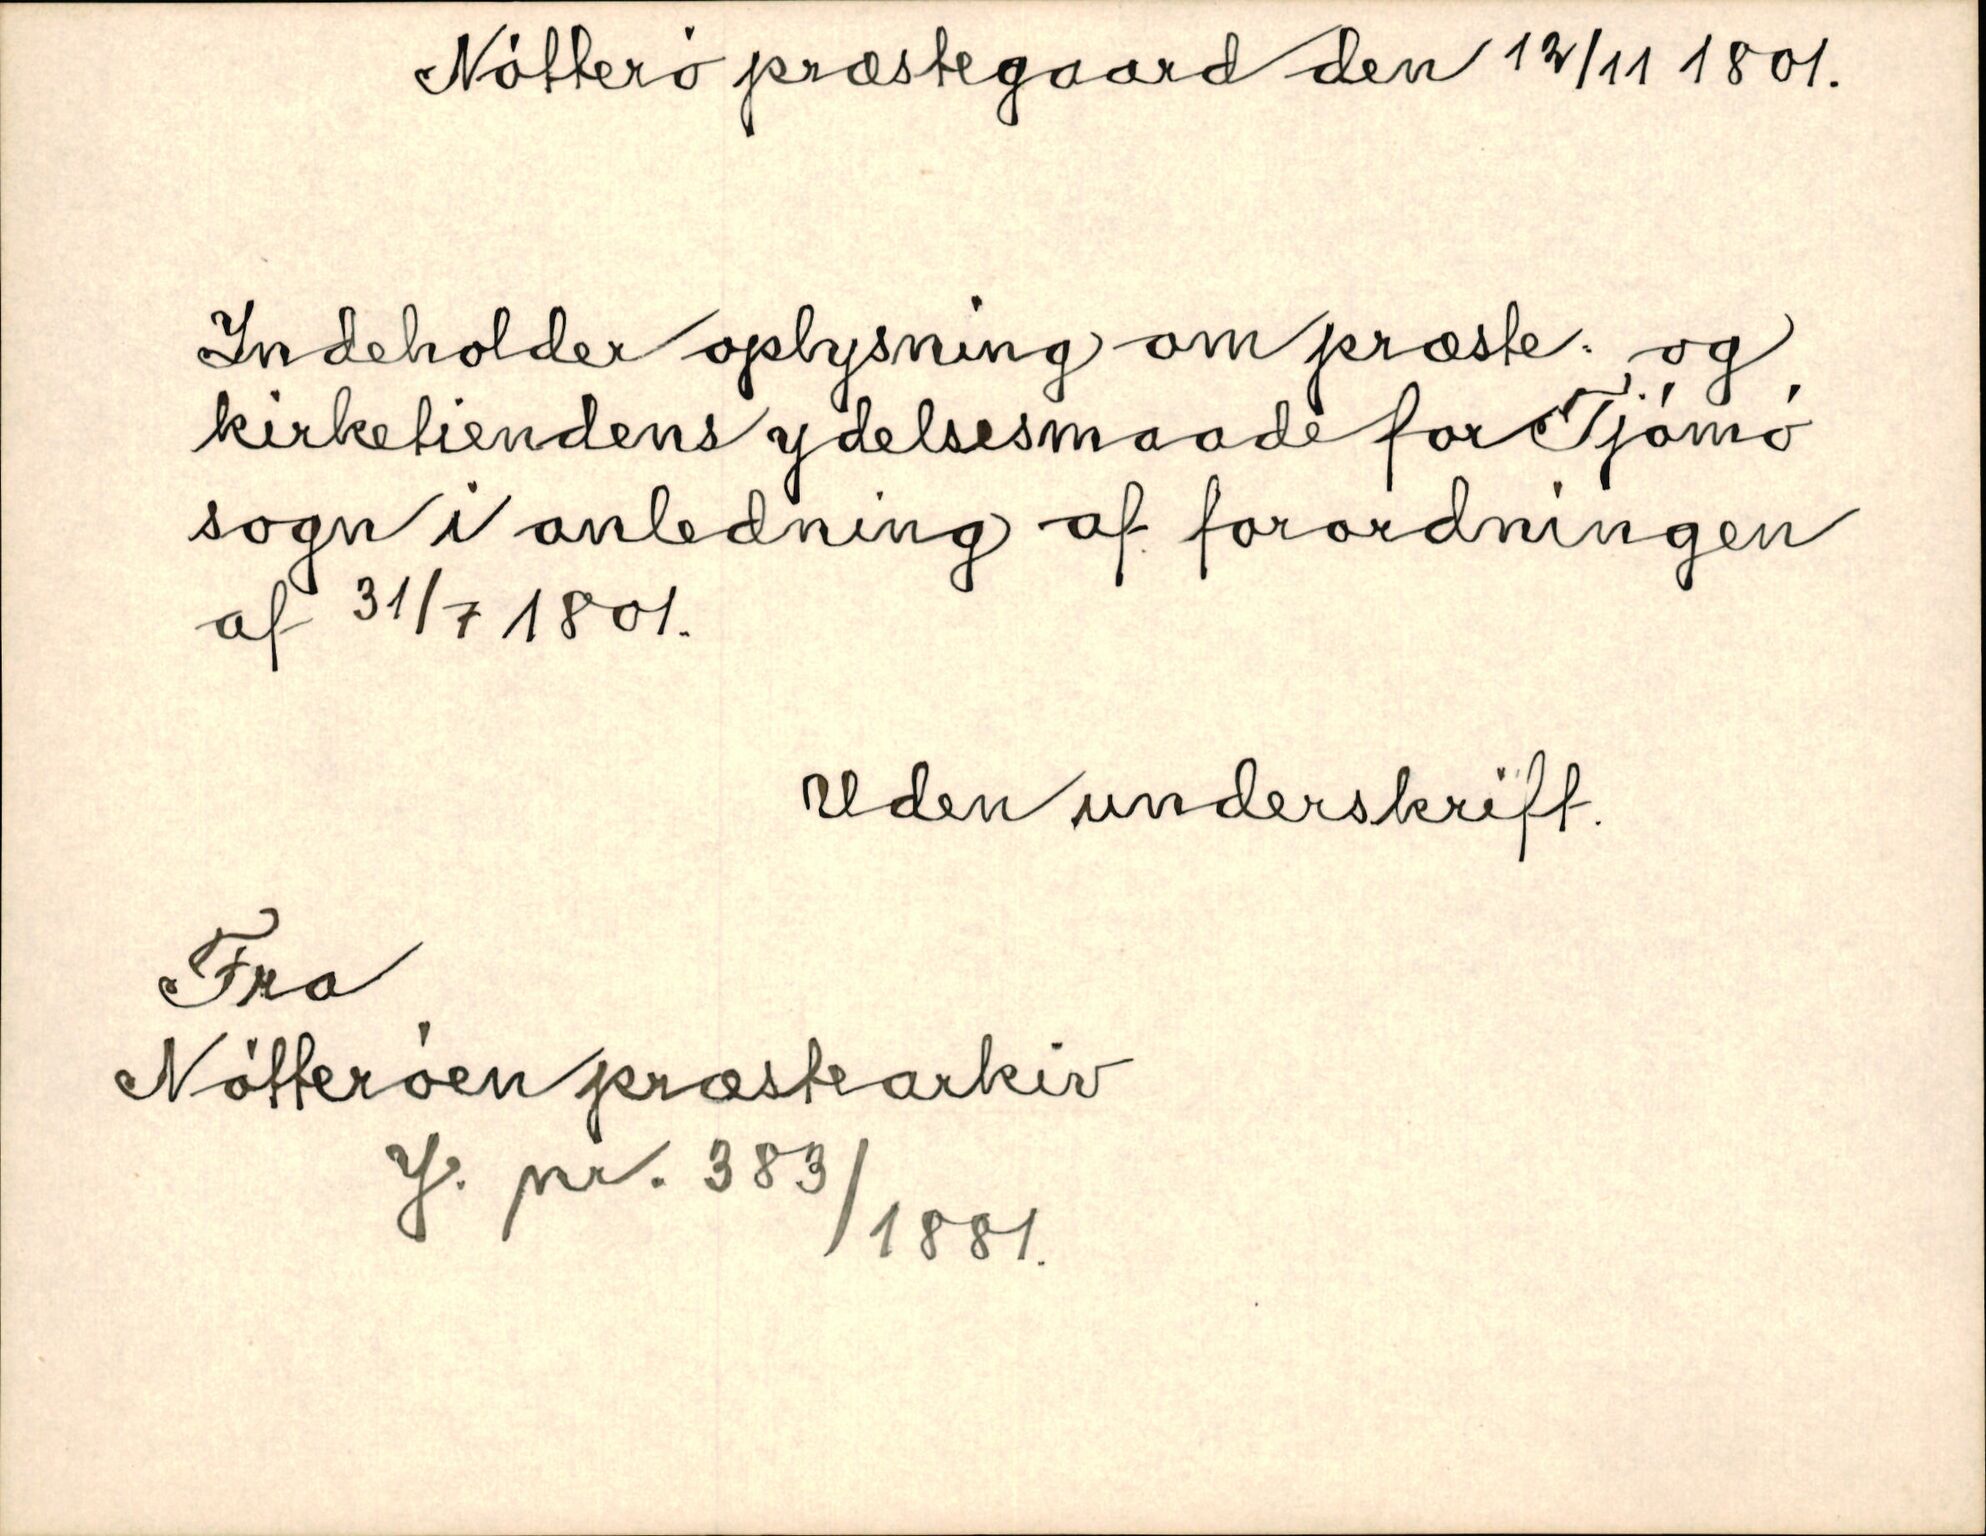 Nótteró præstegaard den 12/11 1801.
Indeholder oplysning om præste- og
kirketiendens ydelsesmaade for Tjómó
sogn i anledning af forordningen
af 31/7 1801.
Uden underskrift.
Fra
Nótteróen præstearkiv
J. nr. 383/1881.